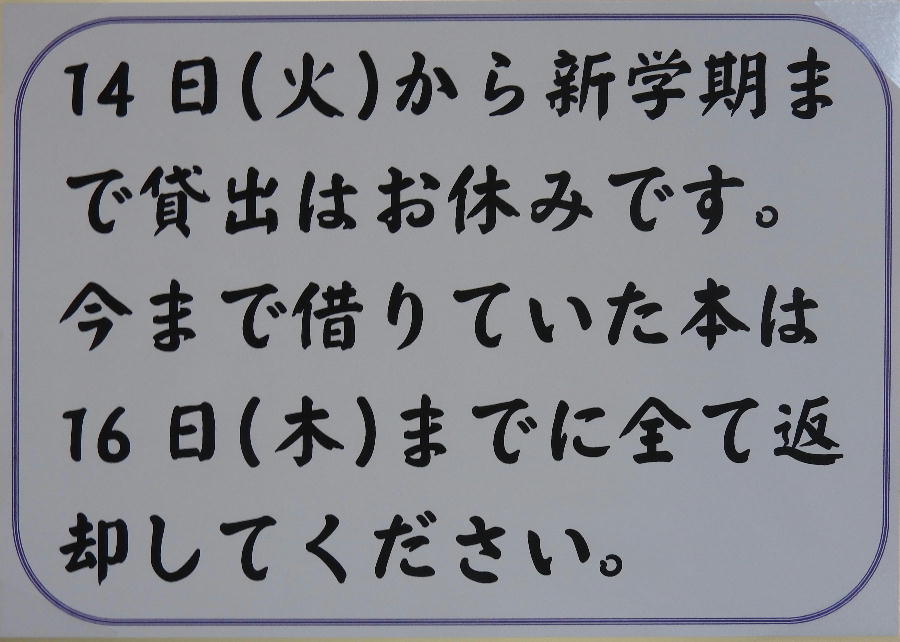 14日(火)から新学期ま
で貸出はお休みです。
今まで借りていた本は
16日(木)までに全て返
却してください。